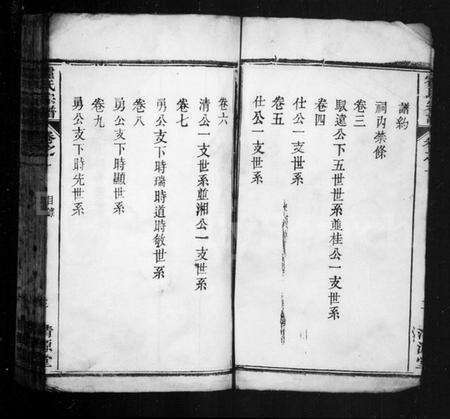 譜約
祠內禁條
卷三
馭遠公下五世世系並桂公一支世系
卷四
仕公一支世系
卷五
仕公一支世系
卷六
清公一支世系並湘公一支世系
卷七
勇公支下時瑞時道時敏世系
卷八
勇公支下時顯世系
卷九
勇公支下時先世系
氏宗譜
目錄
清源堂